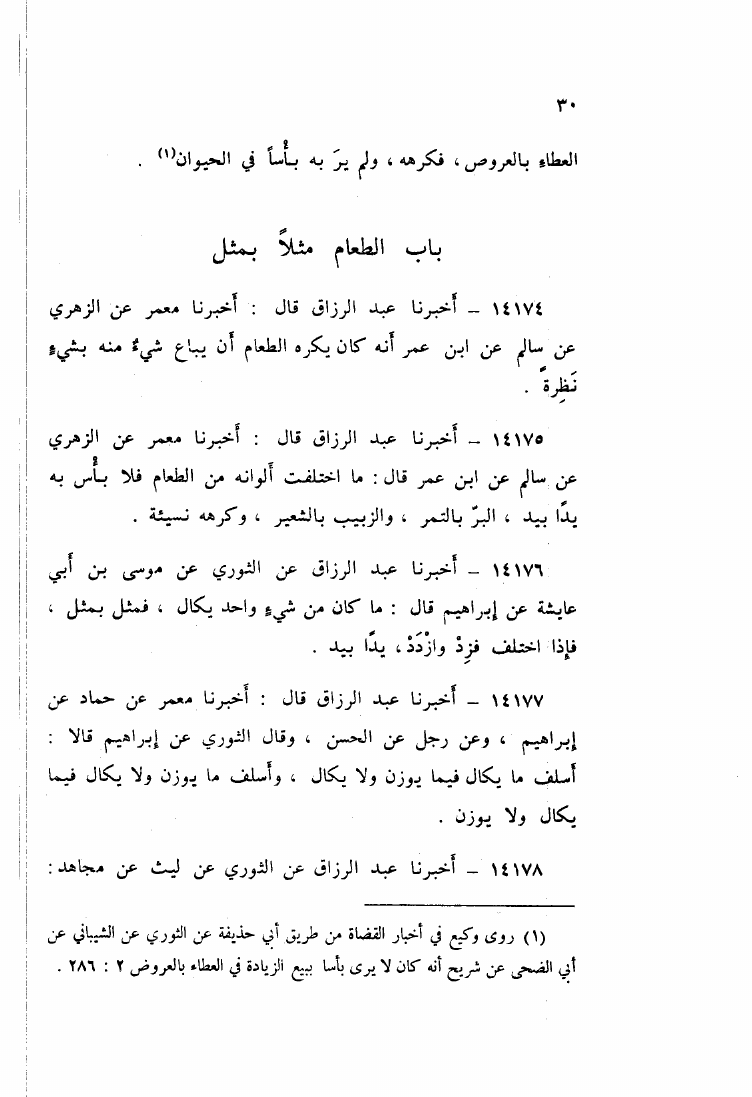 ٣٠
العطاء بالعروض ، فكرهه ، ولم يرَ به بأْساً في الحيوان(١) .
باب الطعام مثلاً بمثل
١٤١٧٤ – أَخبرنا عبد الرزاق قال : أَخبرنا معمر عن الزهري
عن سالم عن ابن عمر أَنه كان يكره الطعام أَن يباع شيءٌ منه بشيءٍ
نَظِرةً .
١٤١٧٥ – أَخبرنا عبد الرزاق قال : أَخبرنا معمر عن الزهري
عن سالم عن ابن عمر قال : ما اختلفت أَلوانه من الطعام فلا بأْس به
يدًا بيد ، البرّ بالتمر ، والزبيب بالشعير ، وكرهه نسيئة .
١٤١٧٦ – أَخبرنا عبد الرزاق عن الثوري عن موسى بن أَبي
عايشة عن إبراهيم قال : ما كان من شيءٍ واحد يكال ، فمثل بمثل ،
فإِذا اختلف فزِدْ وازْدَدْ ، يدًا بيد .
١٤١٧٧ – أَخبرنا عبد الرزاق قال : أَخبرنا معمر عن حماد عن
إبراهيم ، وعن رجل عن الحسن ، وقال الثوري عن إبراهيم قالا :
أَسلف ما يكال فيما يوزن ولا يكال ، وأَسلف ما يوزن ولا يكال فيما
يكال ولا يوزن .
١٤١٧٨ – أَخبرنا عبد الرزاق عن الثوري عن ليث عن مجاهد :
(١) روى وكيع في أخبار القضاة من طريق أبي حذيفة عن الثوري عن الشيباني عن
أبي الضحى عن شريح أنه كان لا يرى بأسا ببيع الزيادة في العطاء بالعروض ٢ : ٢٨٦ .